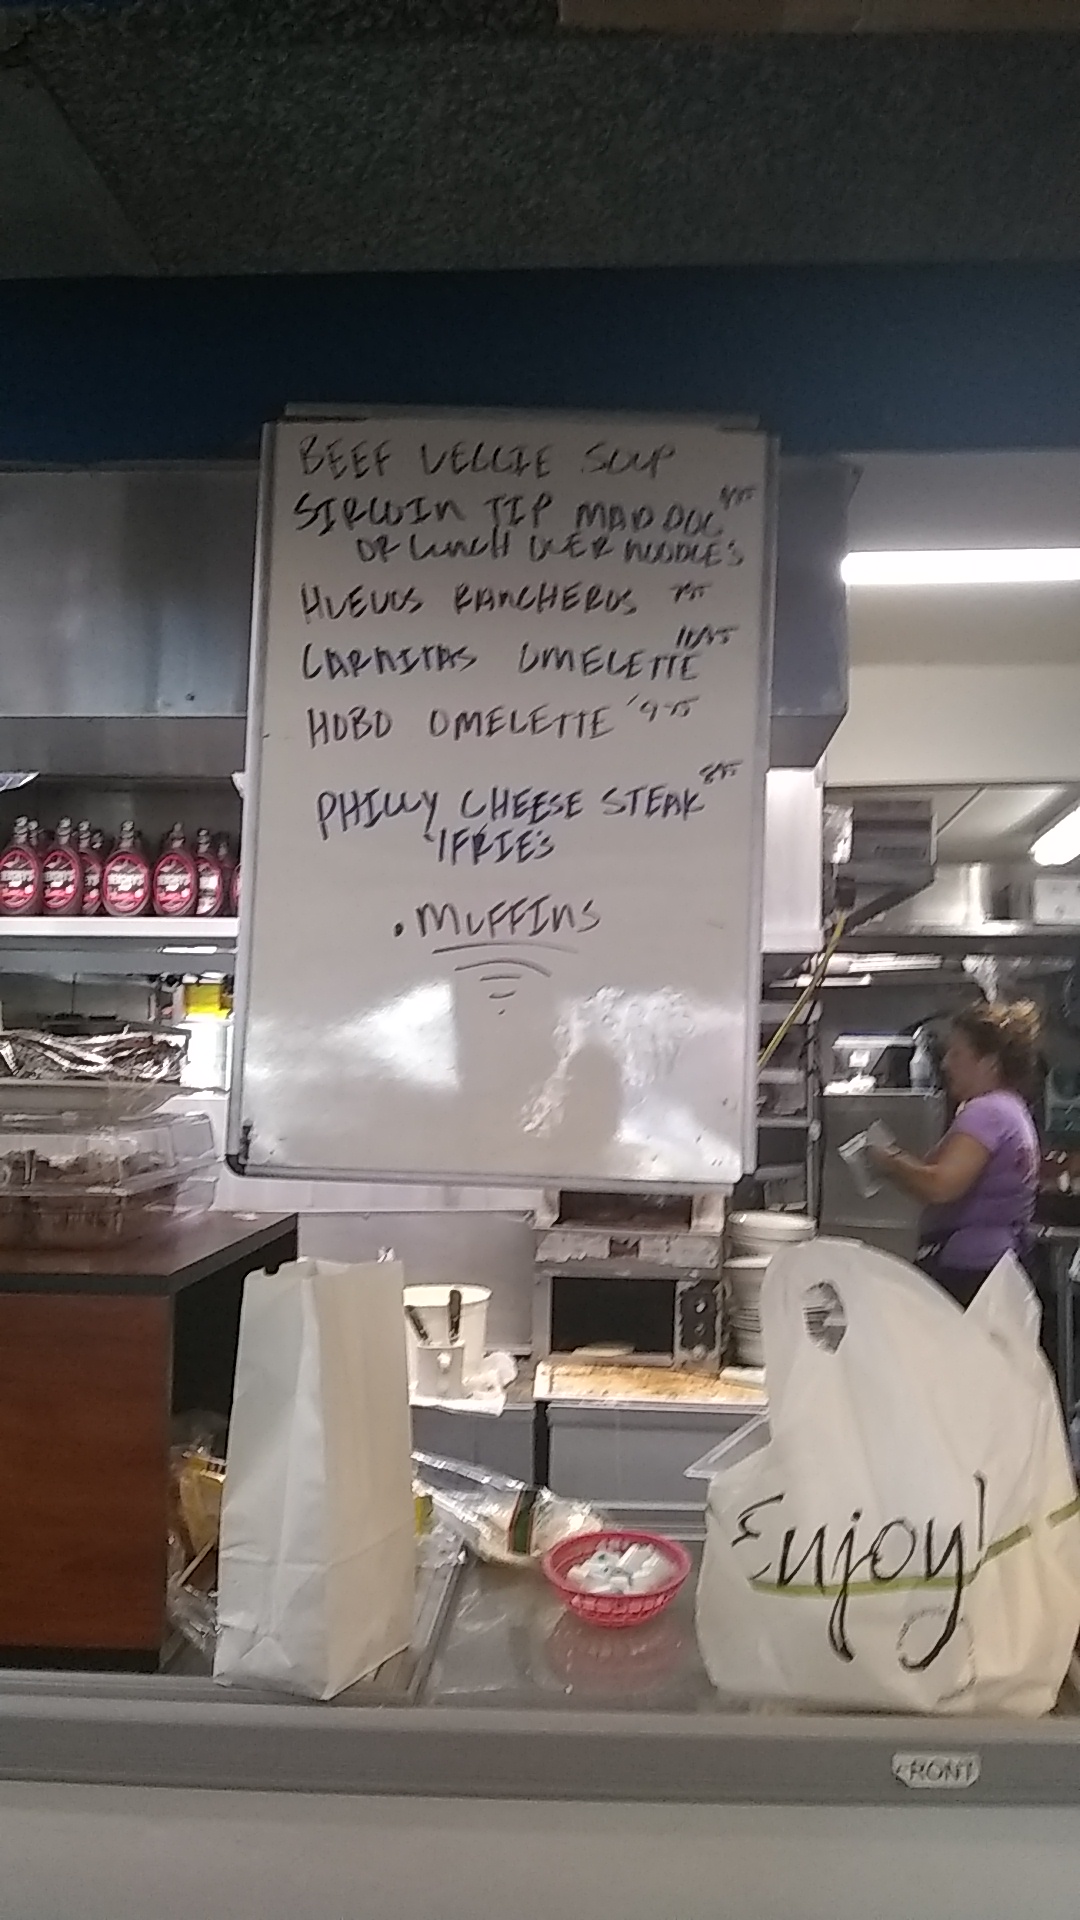 BEEF VEGGIE SOUP
SIRLOIN TIP MAD DOG
OR LUNCH OVER NOODLE'S
HUEVOS RANCHEROS
CARNITAS OMELETTE
HOBO OMELETTE
PHILLY CHEESE STEAK
FRIE'S
• MUFFINS
HERSHEY'S
Enjoy!
FRONT